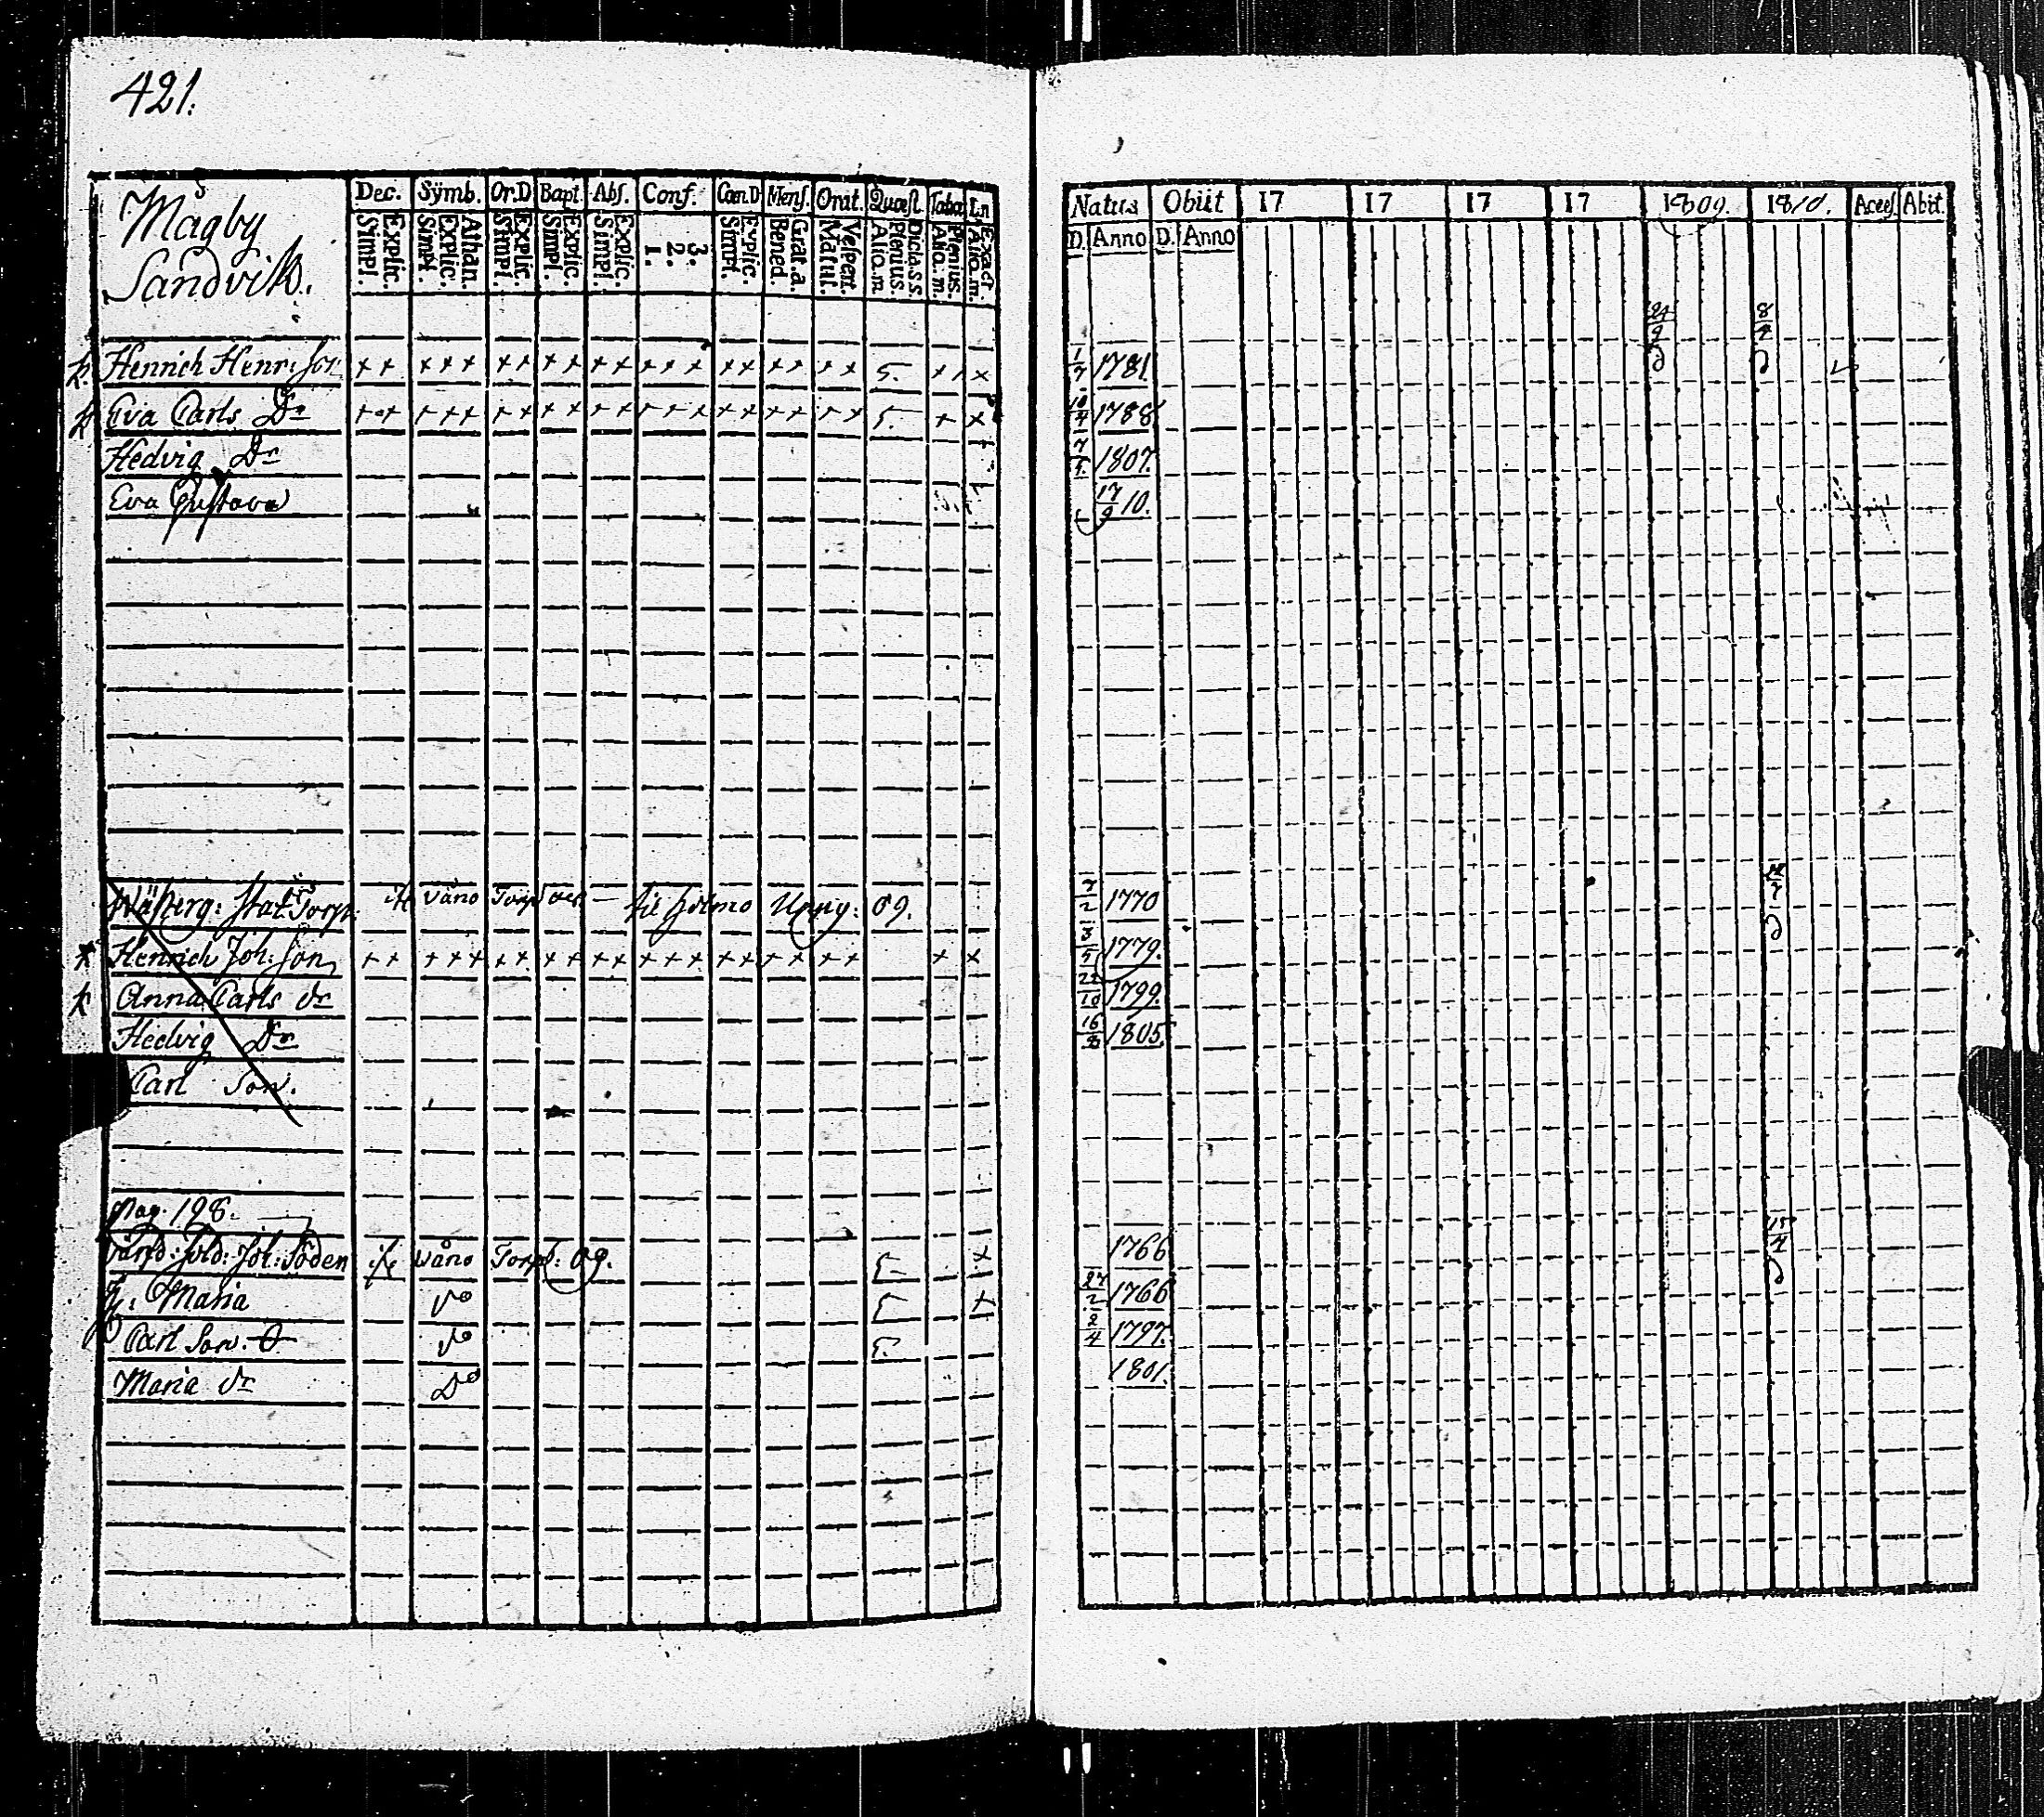 421.
Mågby
Sandvik.
Dec. Sÿmb. Or.D Bapt. Abſ. Conf. Cœn.D Menſ. Orat. Quæſt Taba Ln
Explic. Simpl. Athan. Explic. Simpl. Explic. Simpl. Explic. Simpl. Explic. Simpl. 3. 2. 1. Explic. Simpl. Grat. a. Bened. Veſpert. Matut. Dicta S.S. Plenius. Aliq.m. Plenius. Aliq.m. Exact. Aliq.m.
Natus Obiit 17 17 17 17 1809. 1810. Acceſ. Abit.
D. Anno D. Anno
24/9 8/4
Henrich Henr: ſon ++ +++ ++ ++ ++ +++ ++ ++ ++ 5. ++ + 1/7 1781.
Eva Carls Dr +++ +++ ++ ++ ++ +++ ++ ++ ++ 5. + + 10/4 1788.
Hedvig Dr 7/5. 1807.
Eva Guſtava 17/9 10.
Torp. Våno til Holmo 09. 7/2 1770
Henrich Joh: ſon ++ +++ ++ ++ ++ +++ ++ ++ ++ + + 3/5 1779.
Anna Carls dr 22/10 1799.
Hedvig Dr 16/8 1805.
Carl Son.
Pag. 198.
ſold: Joh: Söden Wåno Torp: 09. + 1766 15/4
H: Maria Do + 27/2 1766
Carl Son. Do 2/4 1797.
Maria dr Do 1801.